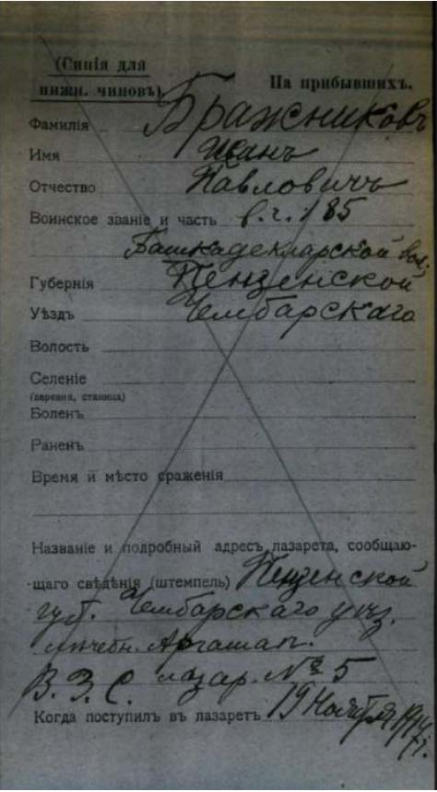 (Синія для
нижн. чиновъ)
На прибывшихъ.
Фамилія Бражниковъ
Имя Иванъ
Отчество Павловичъ
Воинское званіе и часть в. ч. 185
Губернія Пензенской
Уѣздъ Чембарскаго
Волость
Селеніе
(деревня, станица)
Боленъ
Раненъ
Время и мѣсто сраженія
Названіе и подробный адресъ лазарета, сообщаю-
щаго свѣдѣнія (штемпель) Пензенской
губ. Чембарскаго уѣз.
лечебн.
В. З. С. лазар. № 5
Когда поступилъ въ лазаретъ 19 Ноября